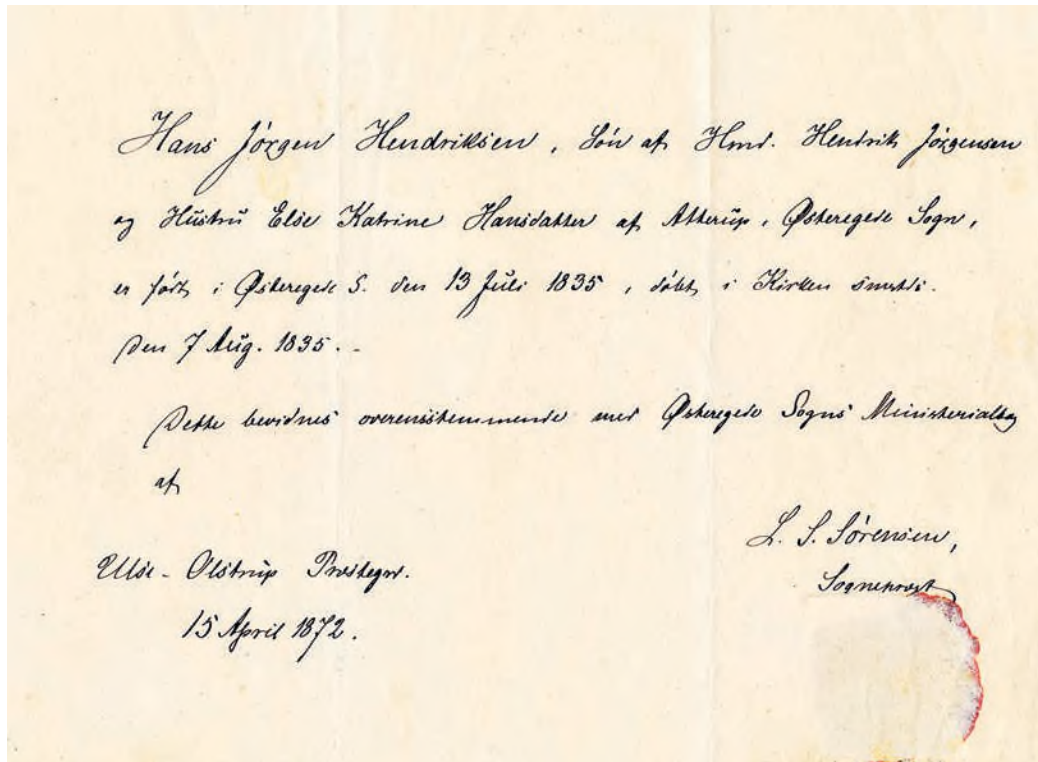 Hans Jörgen Hendriksen, Søn af Hmd. Hendrik Jörgensen
og Hustru Else Katrine Hansdatter af Atterup, Østeregede Sogn,
er født i Østeregede S. den 13 Juli 1835, døbt i Kirken
Den 7 Aug. 1835.
Dette bevidnes overensstemmende med Østeregede Sogns Ministerialbog
af
L. S. Sørensen,
Sognepræst
Ulse-Olstrup Præstegrd.
15 April 1872.